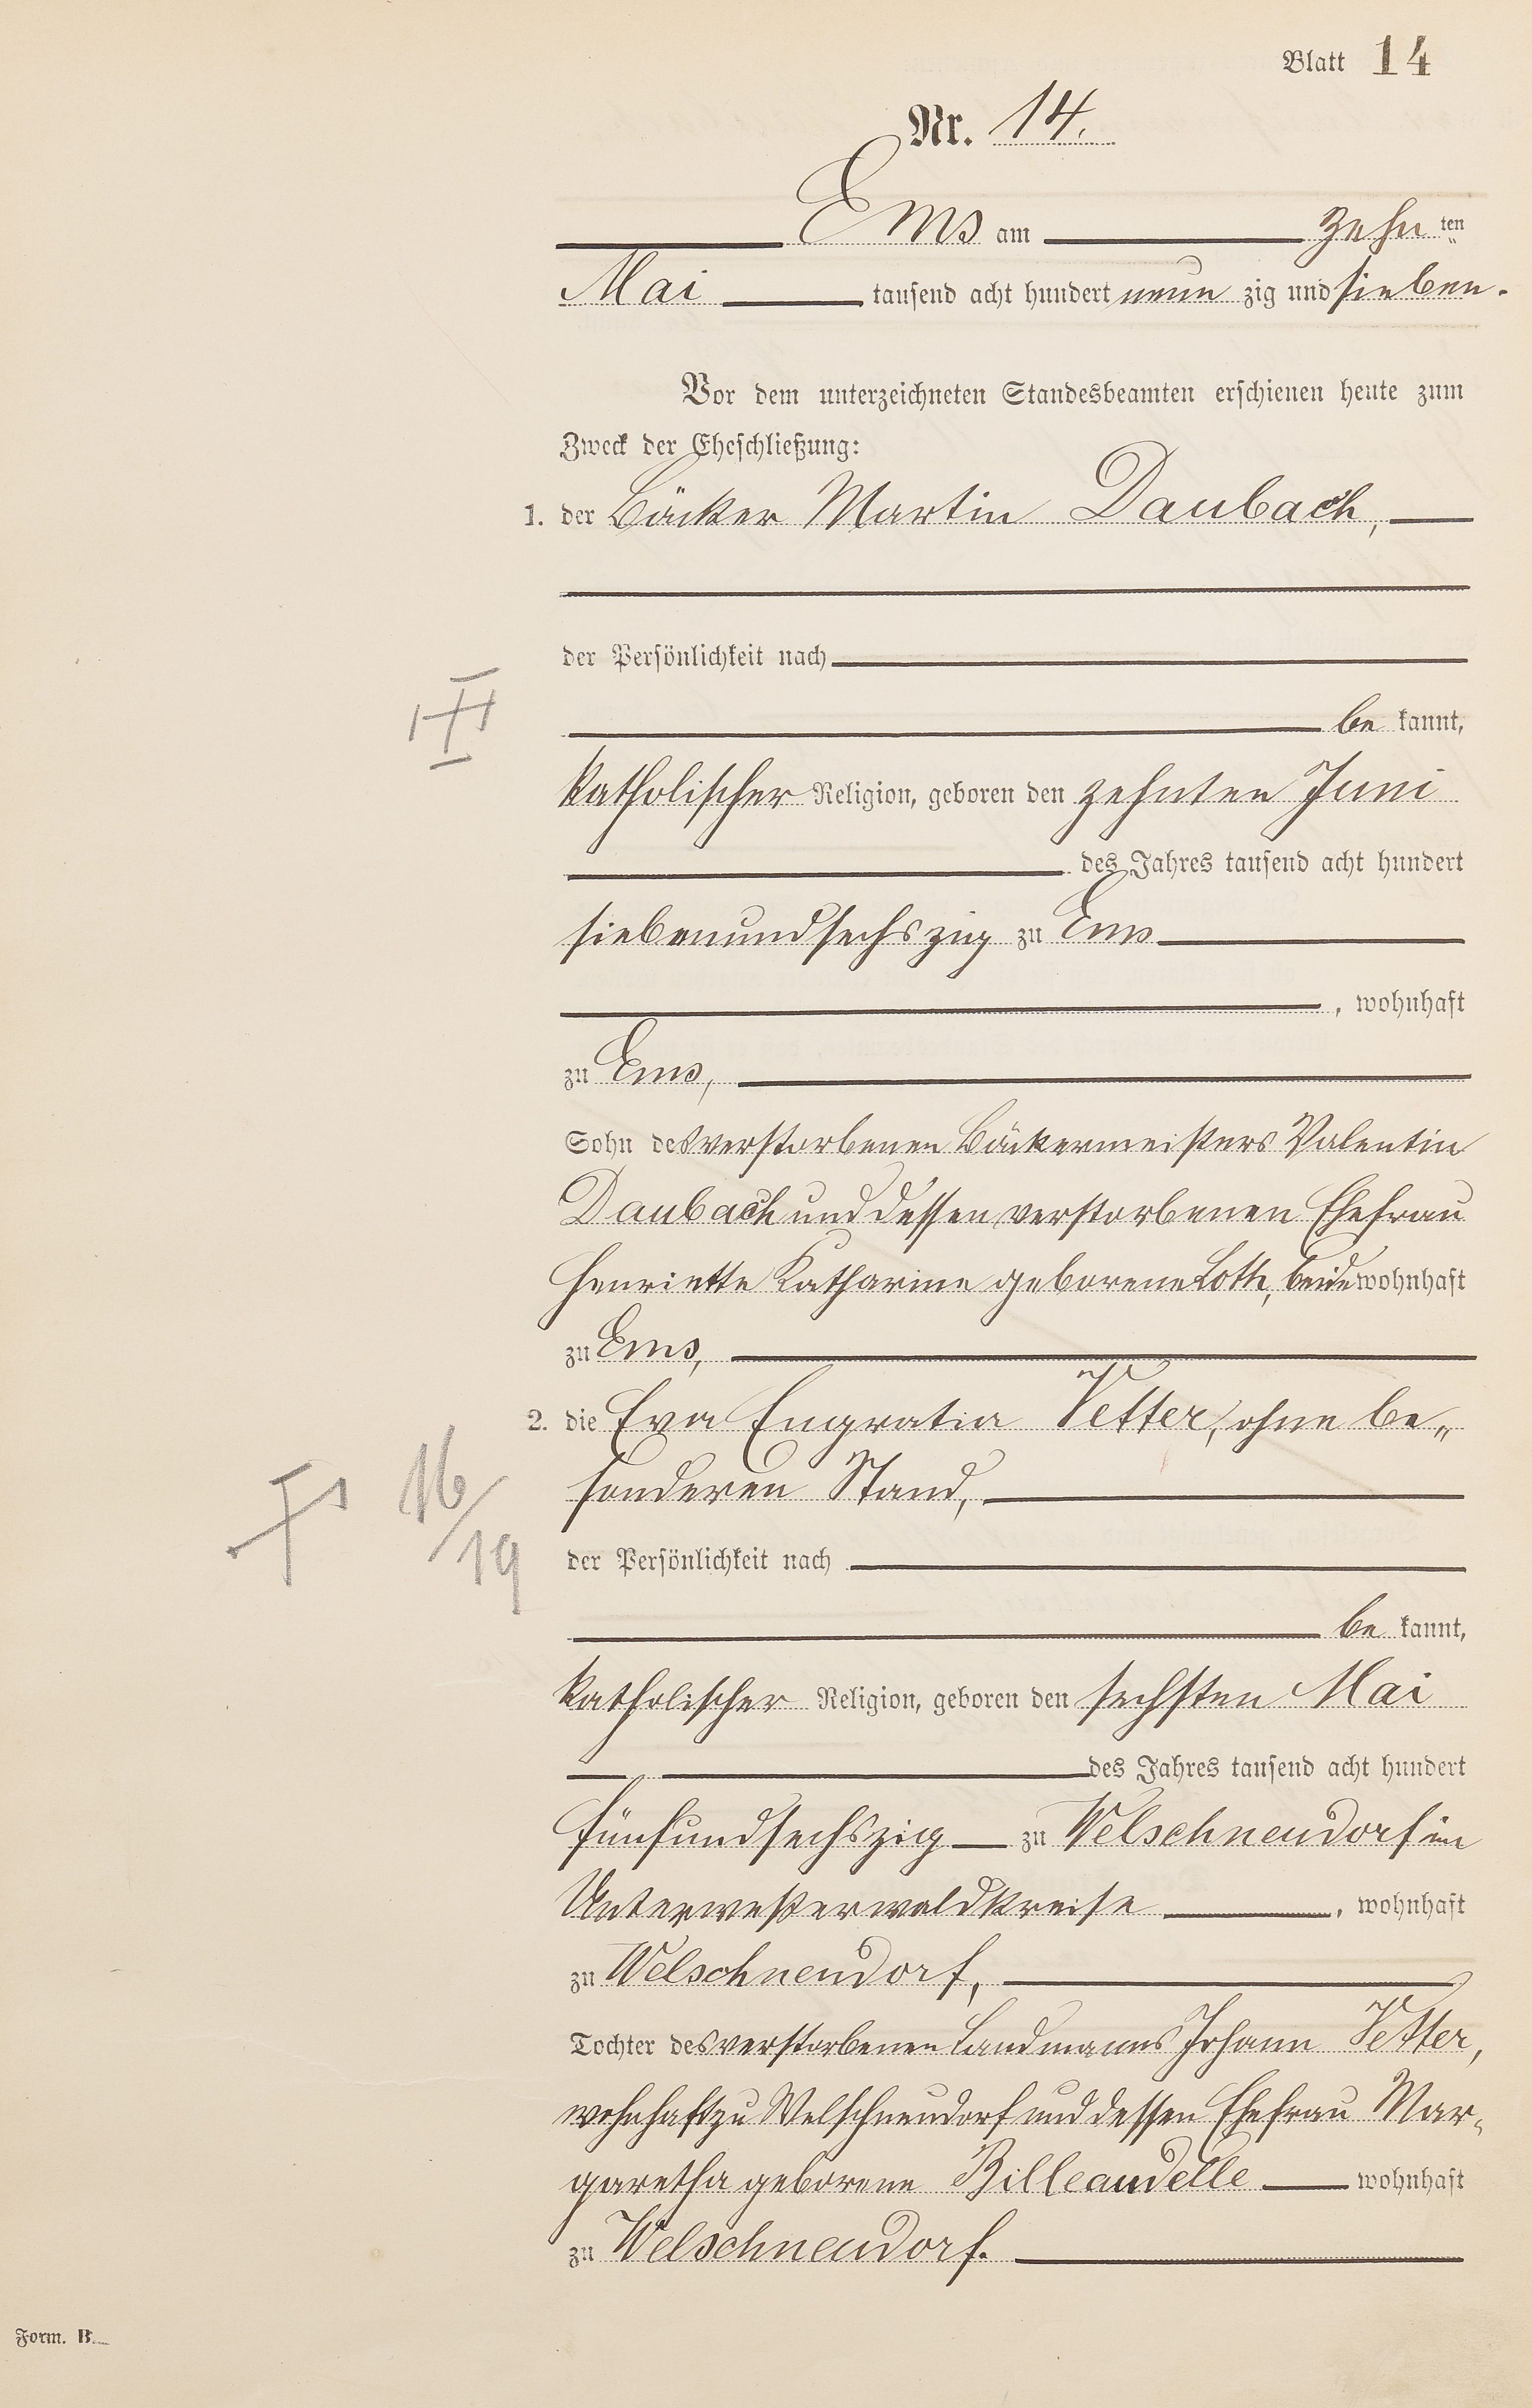 Blatt 14
Nr. 14.
Ems am zehn ten
Mai tausend acht hundert neun zig und sieben.
Vor dem unterzeichneten Standesbeamten erschienen heute zum
Zweck der Eheschließung:
1. der Bäcker Martin Daubach,
der Persönlichkeit nach
be kannt,
katholischer Religion, geboren den zehnten Juni
des Jahres tausend acht hundert
siebenundsechszig zu Ems
, wohnhaft
zu Ems,
Sohn des verstorbenen Bäckermeisters Valentin
Daubach und dessen verstorbenen Ehefrau
Henriette Katharine geborene Loth, beide wohnhaft
zu Ems,
2. die Eva Engratia Vetter, ohne be„
sonderen Stand,
16/19
der Persönlichkeit nach
be kannt,
katholischer Religion, geboren den sechsten Mai
des Jahres tausend acht hundert
fünfundsechszig zu Welschneudorf im
Unterwesterwaldkreise , wohnhaft
zu Welschneudorf,
Tochter des verstorbenen Landmanns Johann Vetter,
wohnhaft zu Welschneudorf und dessen Ehefrau Mar„
garetha geborene Billeaudelle wohnhaft
zu Welschneudorf.
Form. B.